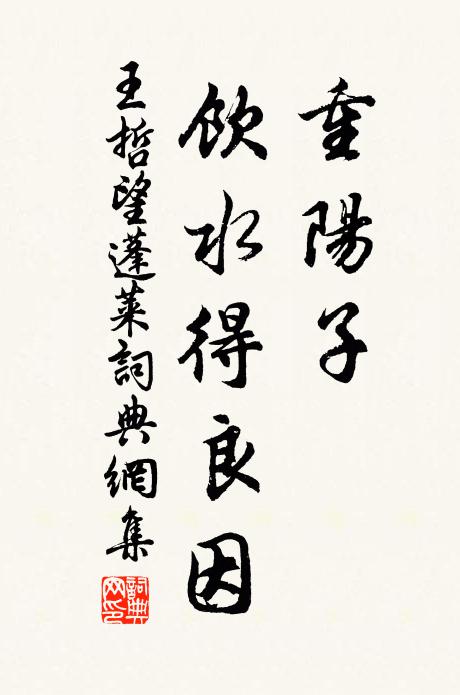 重陽子
飲水得良因
王哲望蓬萊詞典網集
詞典網印